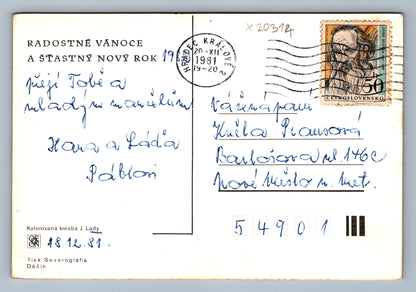 x 20314
RADOSTNÉ VÁNOCE
A ŠŤASTNÝ NOVÝ ROK 19
přejí Tobě a
mladým manželům
Hana a Láďa
HRADEC KRÁLOVÉ
20-XII
1981
19-20
50
ČESKOSLOVENSKO
Vážená paní
Bartošova ul 146c
Nové Město n. Met.
54901
Kolorovaná kresba J. Lady
18.12.81.
Tisk Severografia
Děčín